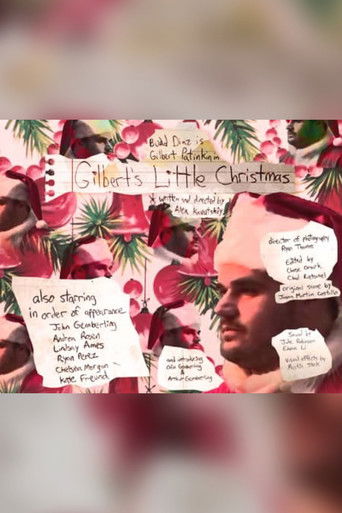 Budd Diaz is
Gilbert Patinkin in
Gilbert's Little Christmas
written and directed by
Alex
director of photography
Ryan Thomas
edited by
Chad
original score by
Juan Martin Castillo
also starring
in order of appearance
John Gemberling
Andrew Rosen
Lindsay Ames
Ryan Perez
Chelsea Morgan
Kate Freund
and introducing
Gemberling
&
Arthur Gemberling
Sound by
Li
visual effects by